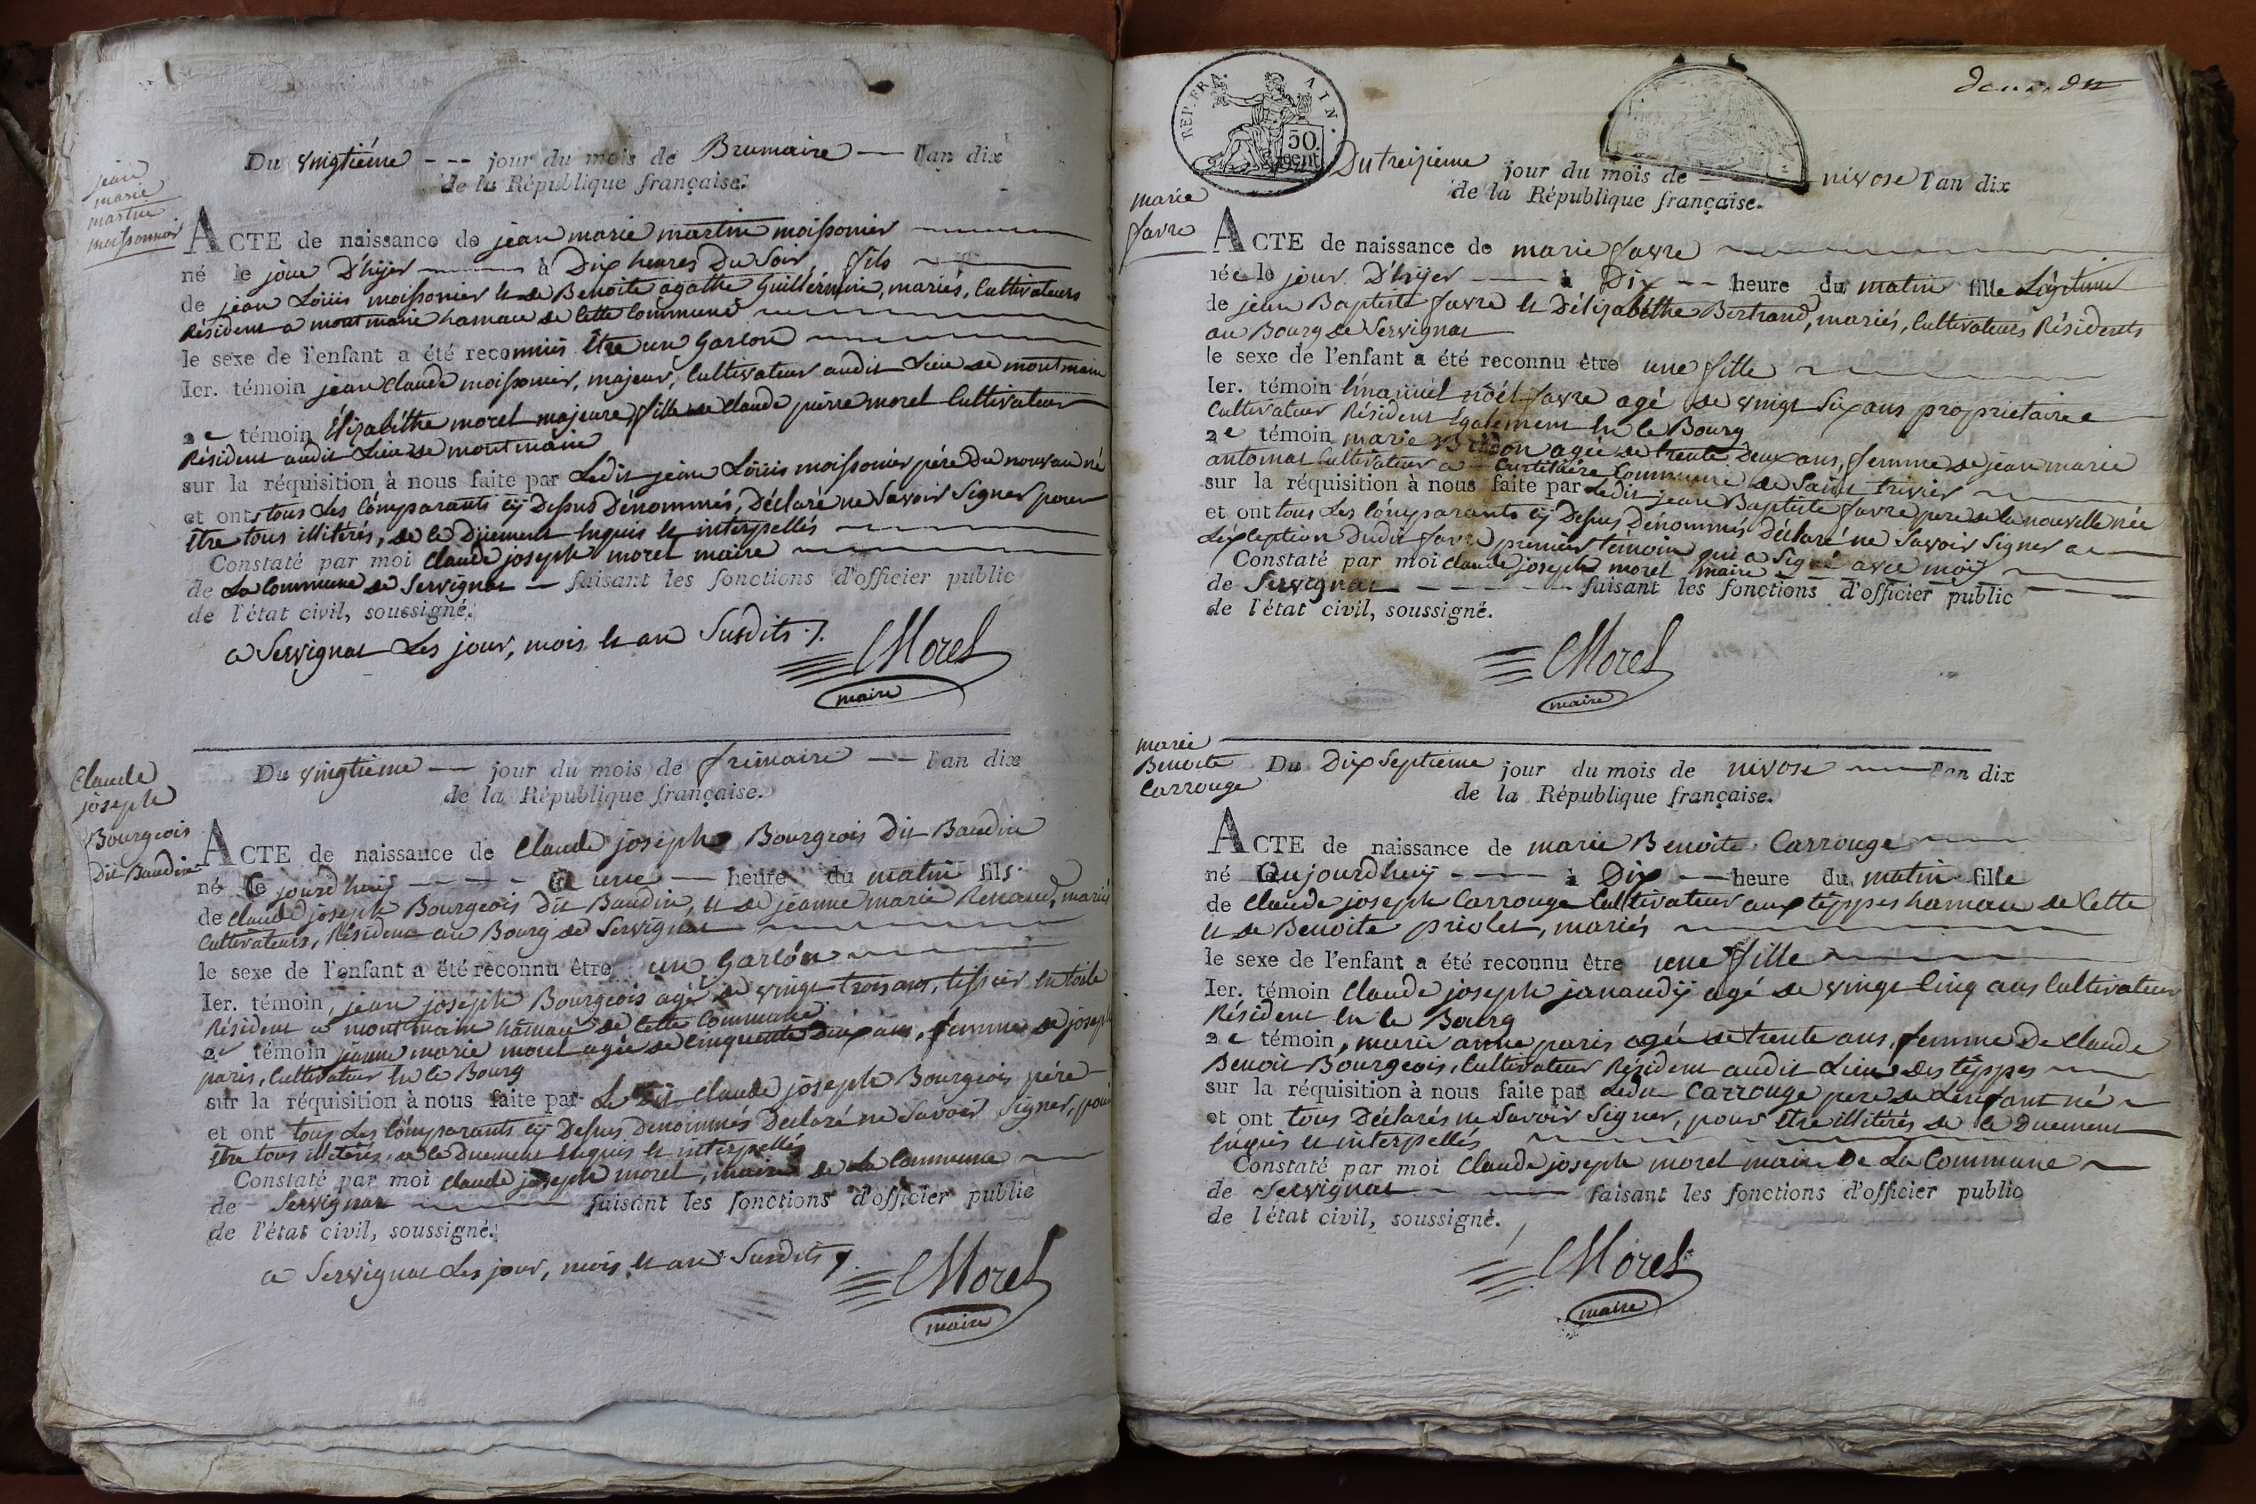 jean
marie
martin
moissonnier
Du vingtiéme --- jour du mois de Brumaire — l'an dix
de la République française.
ACTE de naissance de jean marie martin moissonier
né le jour D'hÿer à Dix heures Du Soir, fils
de jean Loüis moissonier et de Benoite agathe Guillérmine, mariés, Cultivateurs
Résident a montmain hameau de Cette Commune
le sexe de l'enfant a été reconnus Être un Garcon
Ier. témoin jean Claude moissonier, majeur, Cultivateur audit Lieu de montmain
2e témoin Élizabéthe morel majeure fille de Claude pierre morel Cultivateur
Résident audit Lieu de montmain
sur la réquisition à nous faite par Ledit jean Loüis moissonier pére Du nouvau né
et ont tous Les Comparants cÿ Dessus Dénommés, Déclaré ne Savoir Signer pour
Etre tous illitérés, de ce Düement Enquis et interpellés
Constaté par moi Claude joseph morel maire
de La Commune de Servignat — faisant les fonctions d'officier public
de l'état civil, soussigné.
a Servignat Les jour, mois et an Susdits ./.
CMorel
maire
Claude
joseph
Bourgeois
Dit Baudin
Du vingtieme — jour du mois de frimaire — l'an dix
de la République française.
ACTE de naissance de Claude joseph Bourgeois Dit Baudin
né le jourd'huÿ à une — heure du matin fils
de Claude joseph Bourgeois Dit Baudin, et de jeanne marie Renaud, mariés
Cultivateurs, Résident au Bourg de Servignat
le sexe de l'enfant a été reconnu être un Garcón
Ier. témoin, jean joseph Bourgeois agé de vingt trois ans, tissier En toile
Résident a montmain hameau de Cette Commune
2e témoin jeanne marie morel agée de Cinquente Deux ans, femme de joseph
paris, Cultivateur En le Bourg
sur la réquisition à nous faite par Le Dit Claude joseph Bourgeois pére
et ont tous Les Comparants cÿ Dessus Denommés Declaré ne Savoir Signer, pour
Etre tous illitérés, de ce Duement Enquis et interpellés
Constaté par moi Claude joseph morel, maire de La Commune
de Servignat faisant les fonctions d'officier public
de l'état civil, soussigné.
a Servignat Les jour, mois et an Susdits ./.
CMorel
maire
REP. FRA. AIN.
50.
Cent.
Du treizieme jour du mois de nivose l'an dix
de la République française.
marie
favre
ACTE de naissance de marie favre
née le jour D'hÿer à Dix -- heure du matin fille Légitime
de jean Baptiste favre et D'élizabéthe Bertrand, mariés, Cultivateurs Résidents
au Bourg de Servignat
le sexe de l'enfant a été reconnu être une fille
Ier. témoin Emanüel nöél favre agé de vingt Six ans proprietaire
Cultivateur Résident Egalement En le Bourg
2e témoin marie agée de trente Deux ans, femme de jean marie
Cultivateur a Commune de Saint trivier
sur la réquisition à nous faite par Ledit jean Baptiste favre pere de la nouvelle née
et ont tous Les Comparants cÿ Dessus Dénommés Déclaré ne Savoir Signer a
L'éxception Dudit favre premier témoin qui a Signé avec moÿ
Constaté par moi Claude joseph morel maire
de Servignat faisant les fonctions d'officier public
de l'état civil, soussigné.
CMorel
maire
marie
Benoite
Carrouge
Du Dix Septieme jour du mois de nivose l'an dix
de la République française.
ACTE de naissance de marie Benoite Carrouge
né Aujourdhuÿ à Dix — heure du matin fille
de Claude joseph Carrouge Cultivateur aux téppes hameau de Cette
et de Benoite priolet, mariés
le sexe de l'enfant a été reconnu être une fille
Ier. témoin Claude joseph janaudÿ agé de vingt Cinq ans Cultivateur
Résident En le Bourg
2e témoin, marie anne paris agée de trente ans, femme De Claude
Benoit Bourgeois, Cultivateur Résident audit Lieu Des téppes
sur la réquisition à nous faite par Ledit Carrouge pere de L'enfant né
et ont tous Déclarés ne Savoir Signer, pour Etre illitérés de ce Duement
Enquis et interpellés
Constaté par moi Claude joseph morel maire De La Commune
de Servignat faisant les fonctions d'officier public
de l'état civil, soussigné.
CMorel
maire